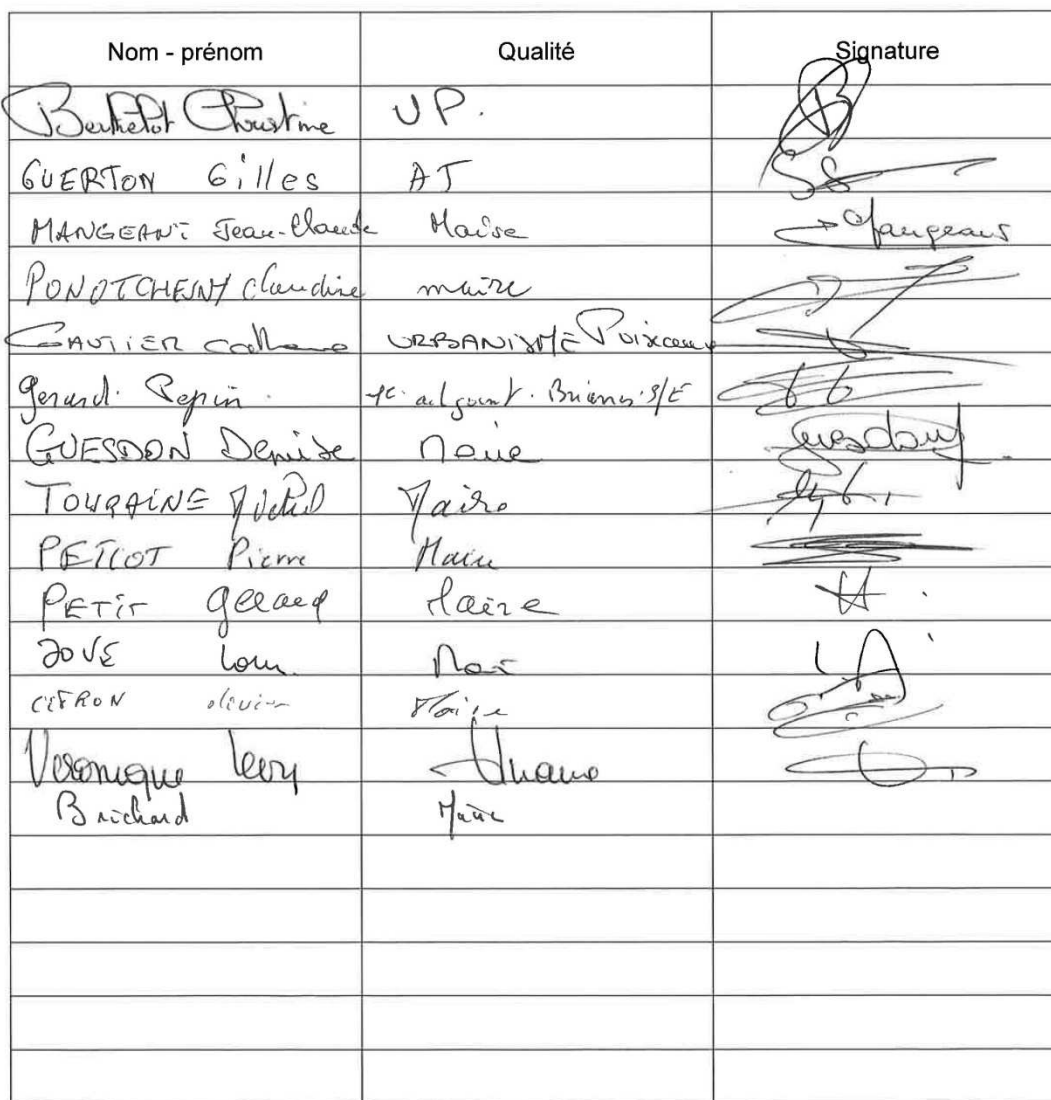 Nom - prénom Qualité Signature
Berthelot Christine VP.
GUERTON Gilles AJ
MANGEANT Jean-Claude Maire Mangeant
PONOTCHEVNY Claudine maire
GAUTIER URBANISME Puiseaux
Gerard Pepin 1er adjoint. S/E
GUESDON Denise Maire Guesdon
TOURAINE Michel Maire
PETIOT Pierre Maire
PETIT Gerard Maire
JOVÉ Maire
CITRON olivier Maire
Veronique Levy
Brichard Maire